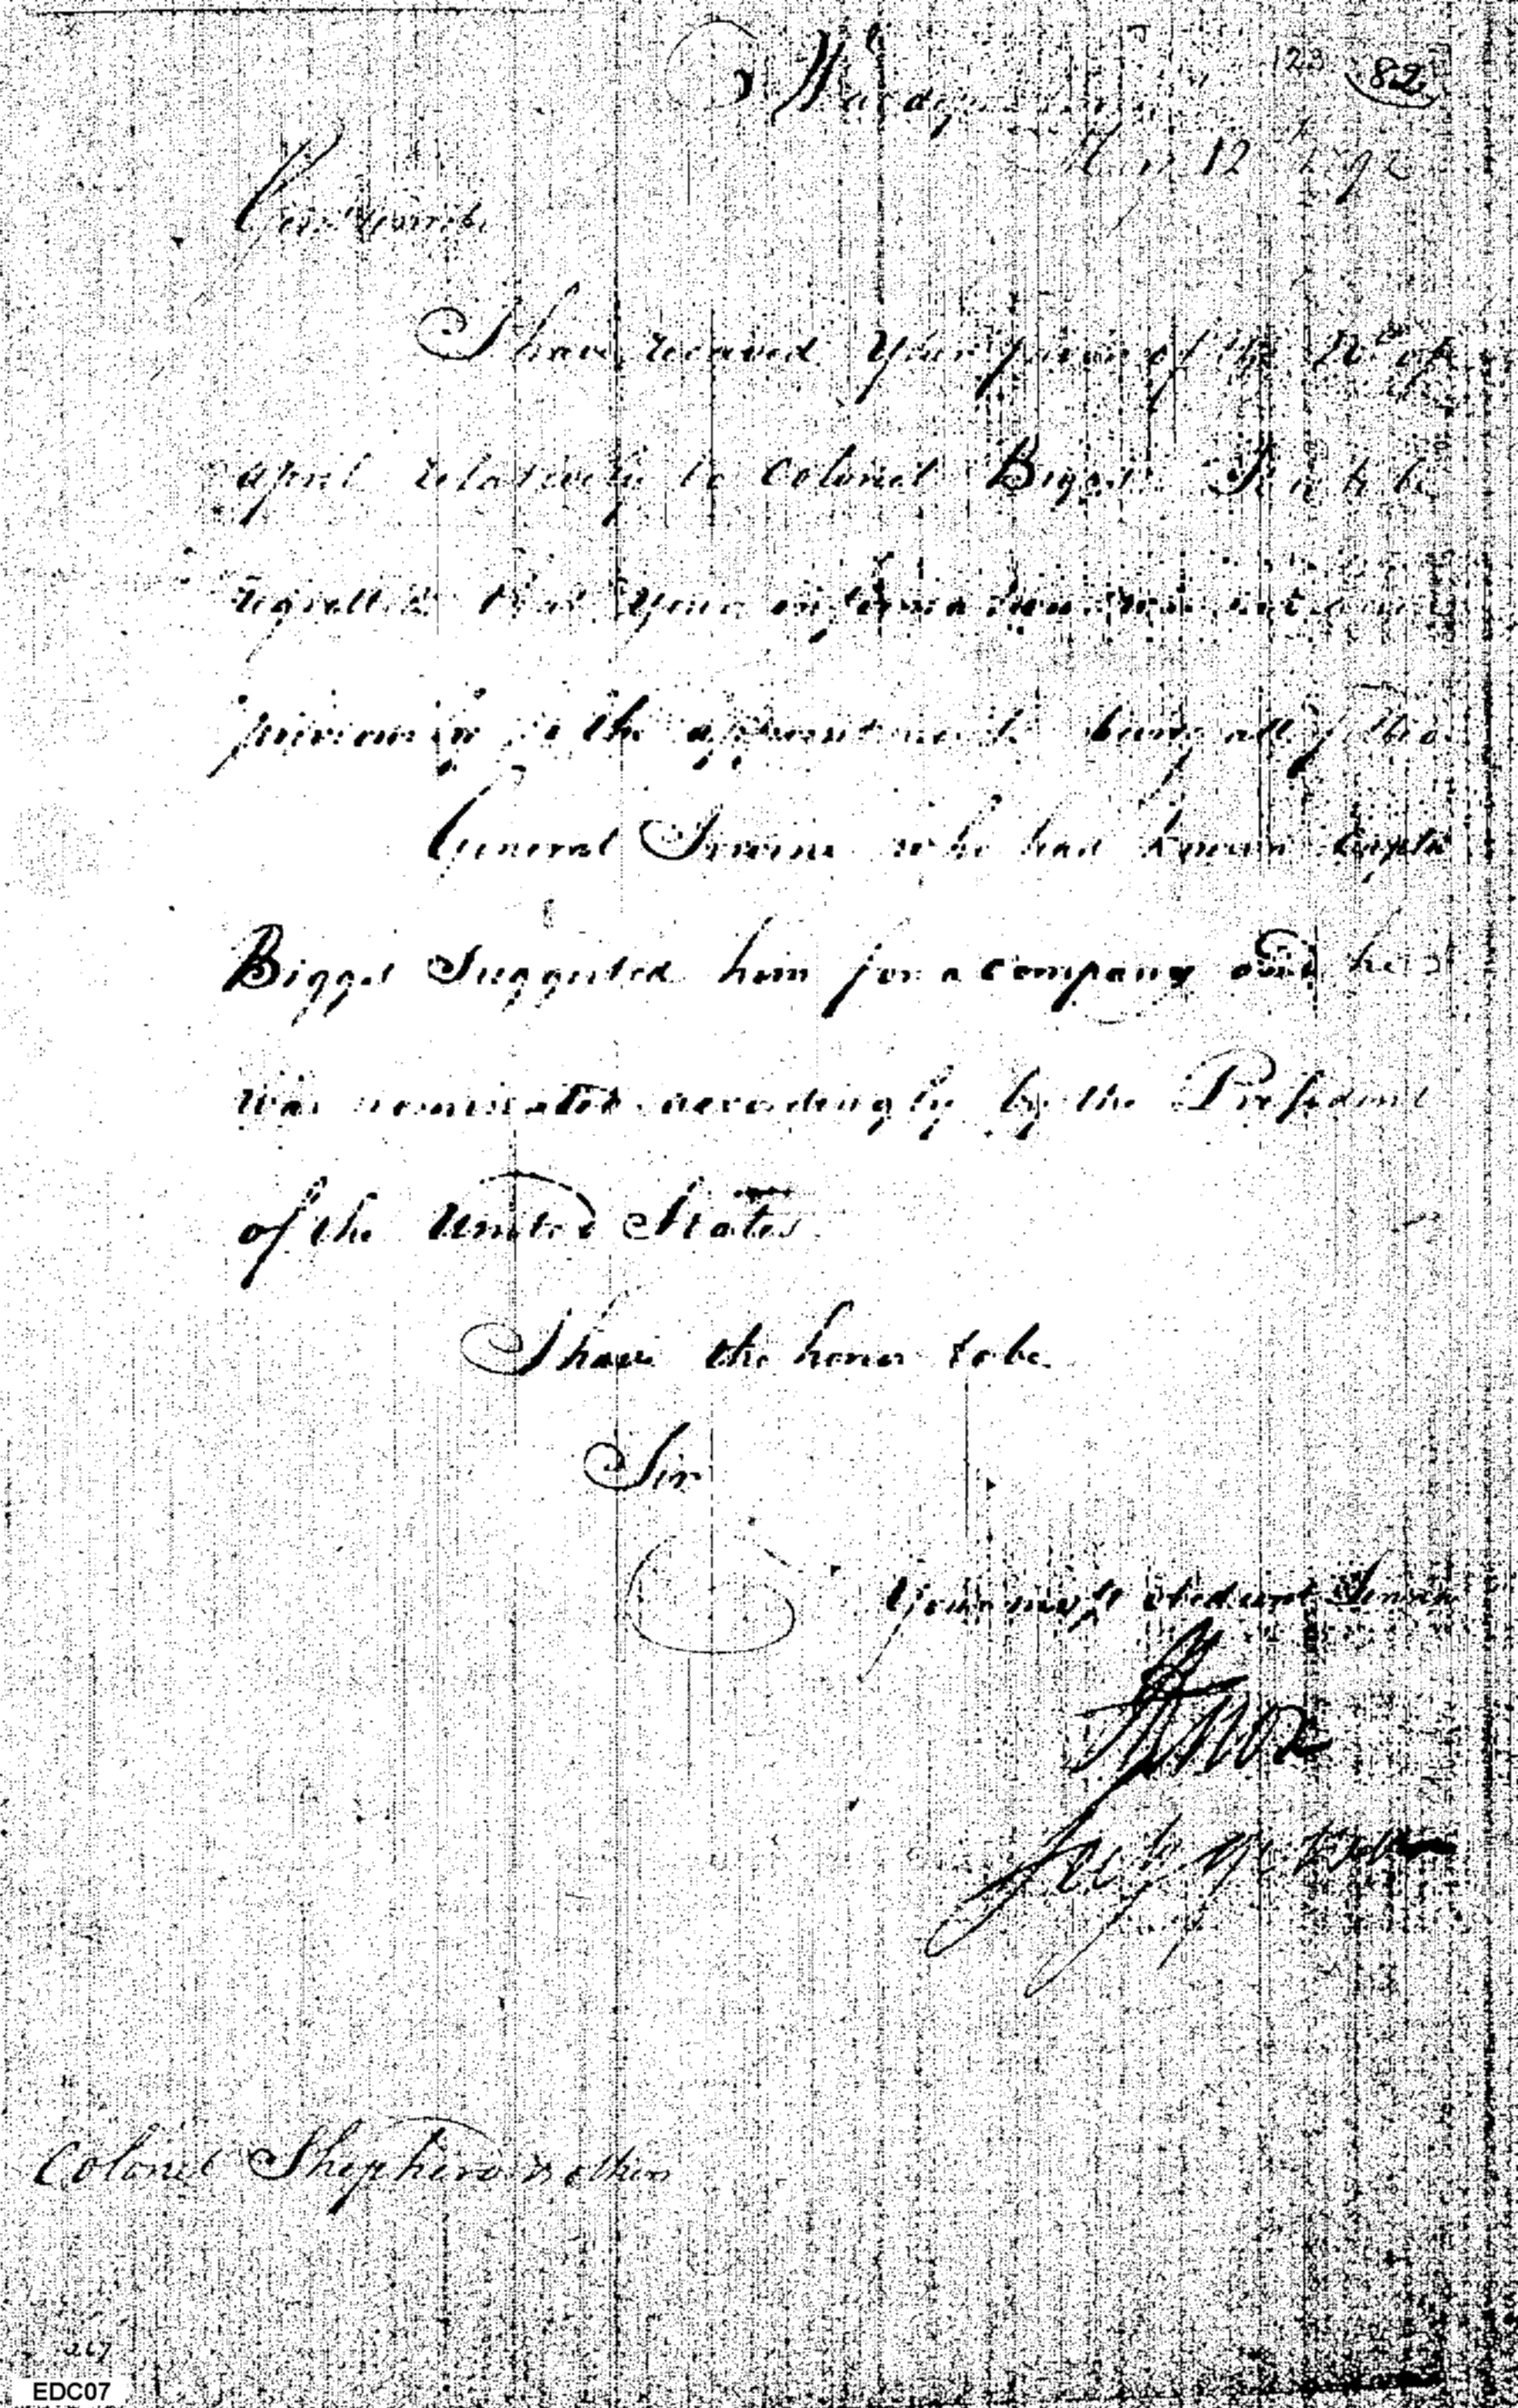 123 82
War department
May 12th 1792
Gentlemen
I have received your favor of the 12th of
april relatively to Colonel Biggs. It is to be
regretted that your information was not
previously to the appointments being all filled
General Irvine who had known Captn
Biggs Suggested him for a company and he
was nominated accordingly by the President
of the United States.
I have the honor to be
Sir
Your most obedient Servant
HKnox
Secy of War
Colonel Shepherd & others
267
EDC07